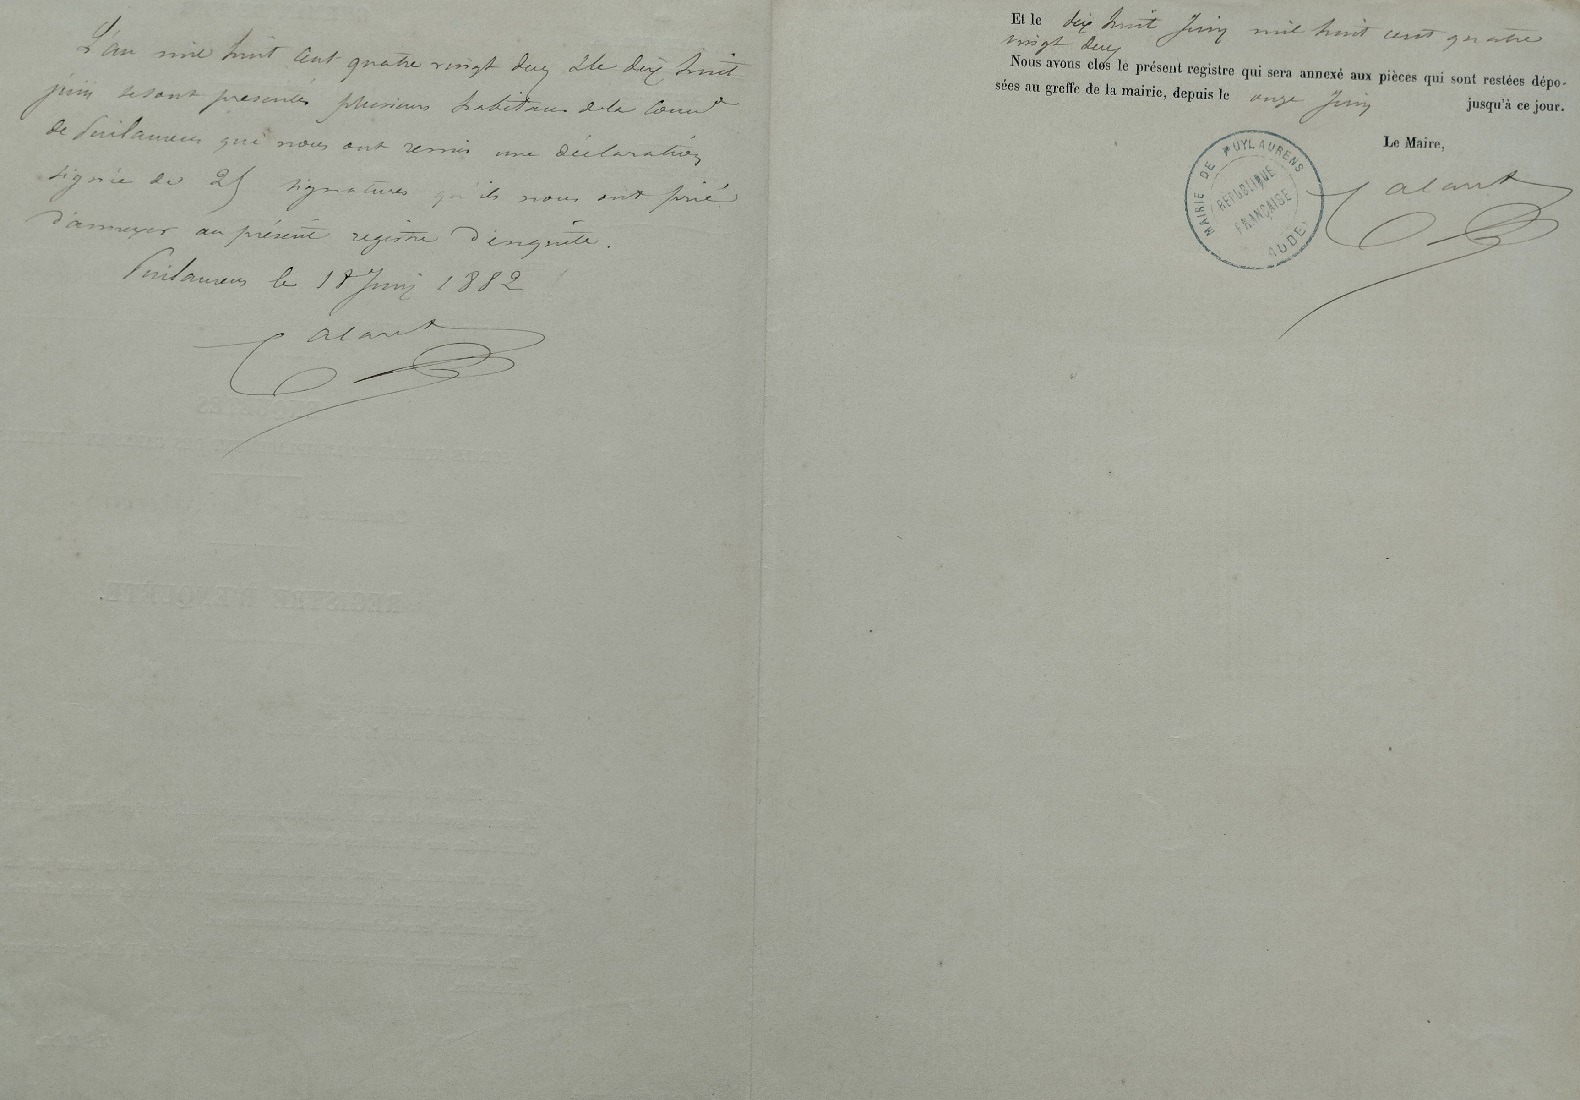 L'an mil huit cent quatre vingt deux & le dix huit
juin se sont présentés plusieurs habitans de la Comm
de Puilaurens qui nous ont remis une déclaration
signée de 25 signatures qu'ils nous ont prié
d'annexer au présent registre d'enquête.
Puilaurens le 18 Juin 1882
Calaret
Et le dix huit Juin mil huit cent quatre
vingt deux
Nous avons clos le présent registre qui sera annexé aux pièces qui sont restées dépo-
sées au greffe de la mairie, depuis le onze Juin jusqu'à ce jour.
Le Maire,
MAIRIE DE PUYLAURENS
RÉPUBLIQUE
FRANÇAISE
(AUDE)